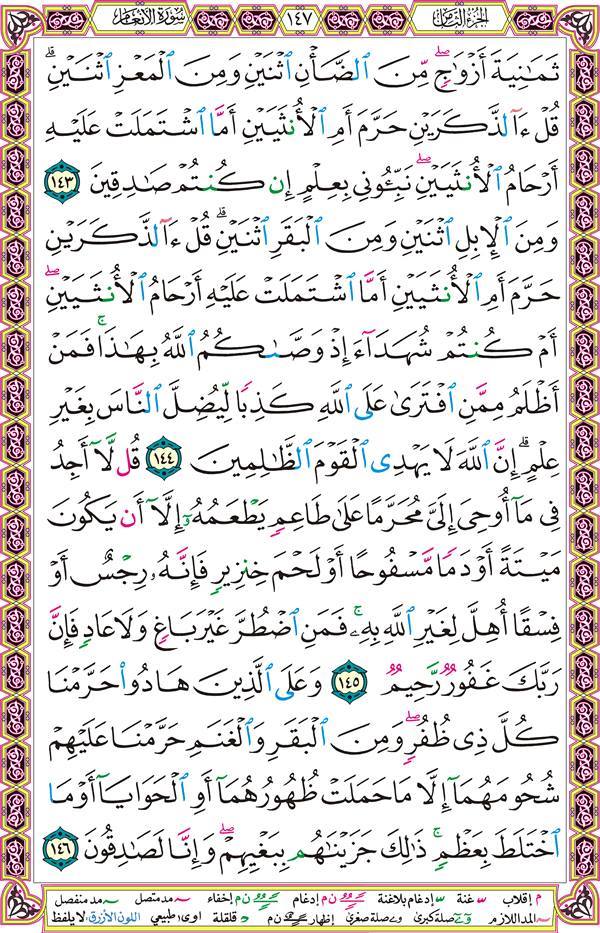 الجزء الثامن ١٤٧ سورة الأنعام
ثَمَٰنِيَةَ أَزْوَٰجٍۖ مِّنَ ٱلضَّأْنِ ٱثْنَيْنِ وَمِنَ ٱلْمَعْزِ ٱثْنَيْنِۗ
قُلْ ءَآلذَّكَرَيْنِ حَرَّمَ أَمِ ٱلْأُنثَيَيْنِ أَمَّا ٱشْتَمَلَتْ عَلَيْهِ
أَرْحَامُ ٱلْأُنثَيَيْنِۖ نَبِّـُٔونِي بِعِلْمٍ إِن كُنتُمْ صَٰدِقِينَ ١٤٣
وَمِنَ ٱلْإِبِلِ ٱثْنَيْنِ وَمِنَ ٱلْبَقَرِ ٱثْنَيْنِۗ قُلْ ءَآلذَّكَرَيْنِ
حَرَّمَ أَمِ ٱلْأُنثَيَيْنِ أَمَّا ٱشْتَمَلَتْ عَلَيْهِ أَرْحَامُ ٱلْأُنثَيَيْنِۖ
أَمْ كُنتُمْ شُهَدَآءَ إِذْ وَصَّىٰكُمُ ٱللَّهُ بِهَٰذَاۚ فَمَنْ
أَظْلَمُ مِمَّنِ ٱفْتَرَىٰ عَلَى ٱللَّهِ كَذِبًا لِّيُضِلَّ ٱلنَّاسَ بِغَيْرِ
عِلْمٍۗ إِنَّ ٱللَّهَ لَا يَهْدِى ٱلْقَوْمَ ٱلظَّٰلِمِينَ ١٤٤ قُل لَّآ أَجِدُ
فِى مَآ أُوحِىَ إِلَىَّ مُحَرَّمًا عَلَىٰ طَاعِمٍ يَطْعَمُهُۥٓ إِلَّآ أَن يَكُونَ
مَيْتَةً أَوْ دَمًا مَّسْفُوحًا أَوْ لَحْمَ خِنزِيرٍ فَإِنَّهُۥ رِجْسٌ أَوْ
فِسْقًا أُهِلَّ لِغَيْرِ ٱللَّهِ بِهِۦۚ فَمَنِ ٱضْطُرَّ غَيْرَ بَاغٍ وَلَا عَادٍ فَإِنَّ
رَبَّكَ غَفُورٌ رَّحِيمٌ ١٤٥ وَعَلَى ٱلَّذِينَ هَادُوا۟ حَرَّمْنَا
كُلَّ ذِى ظُفُرٍۖ وَمِنَ ٱلْبَقَرِ وَٱلْغَنَمِ حَرَّمْنَا عَلَيْهِمْ
شُحُومَهُمَآ إِلَّا مَا حَمَلَتْ ظُهُورُهُمَآ أَوِ ٱلْحَوَايَآ أَوْ مَا
ٱخْتَلَطَ بِعَظْمٍۚ ذَٰلِكَ جَزَيْنَٰهُم بِبَغْيِهِمْۖ وَإِنَّا لَصَٰدِقُونَ ١٤٦
م إقلاب غنة إدغام بلاغنة ن م إدغام ن م إخفاء مد متصل مد منفصل
المد اللازم صلة كبرى صلة صغرى إظهار ن م قلقلة اوى طبيعي اللون الأزرق لا يلفظ